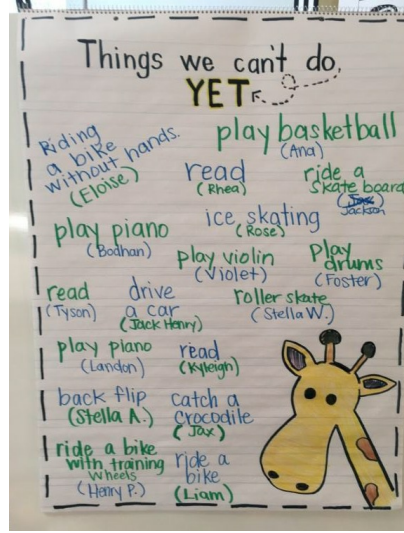 Things we can't do,
YET
Riding
a bike
without hands.
(Eloise)
play basketball
(Ana)
read
(Rhea)
ride a
skate board
Jackson
play piano
(Bodhan)
ice skating
(Rose)
play violin
(Violet)
Play
drums
(Foster)
read
(Tyson)
drive
a car
(Jack Henry)
roller skate
(Stella W.)
play piano
(Landon)
read
(Kyleigh)
back flip
(Stella A.)
catch a
crocodile
(Jax)
ride a bike
with training
wheels
(Henry P.)
ride a
bike
(Liam)